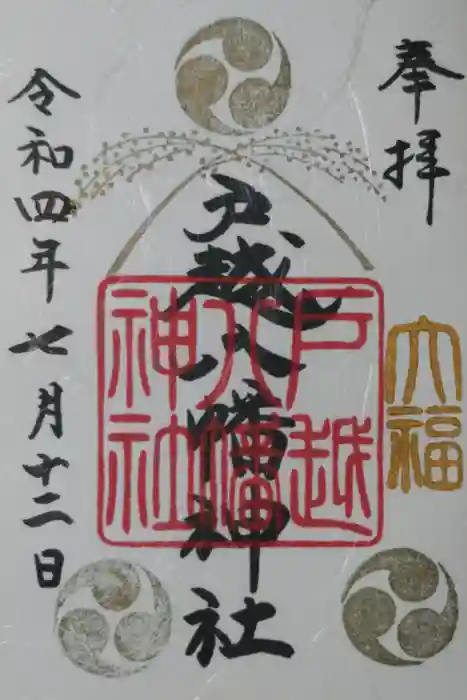 奉拝
大福
戸越八幡神社
戸越
八幡
神社
令和四年七月十二日